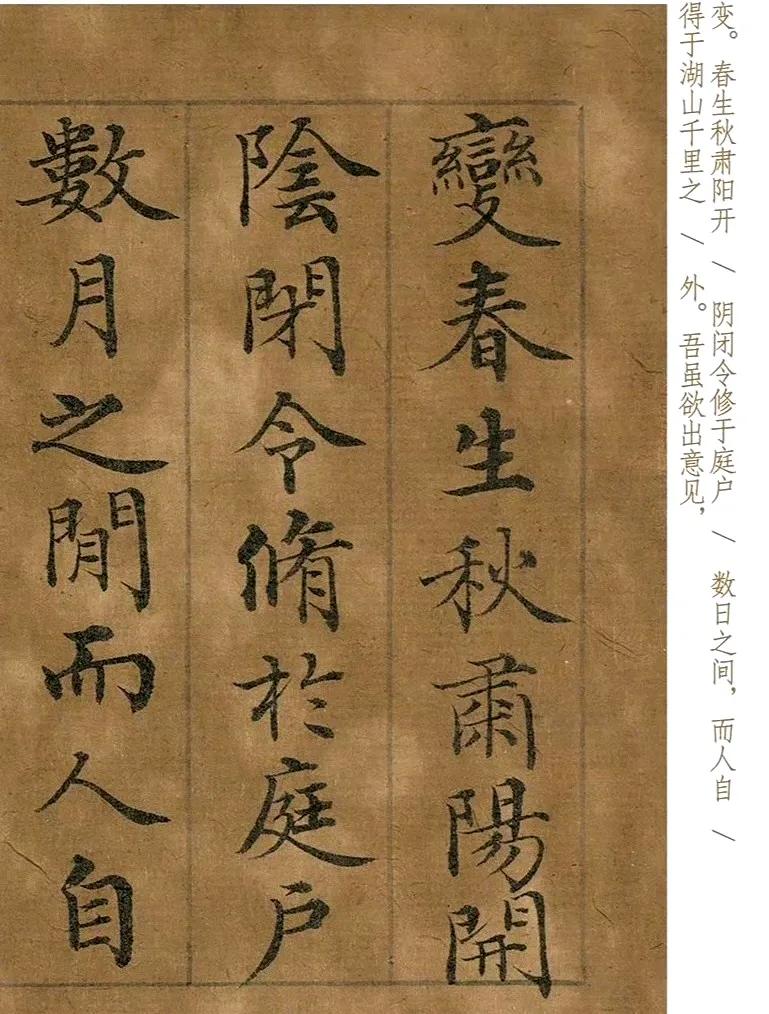 变。春生秋肃阳开 / 阴闭令修于庭户 / 数日之间，而人自 /
得于湖山千里之 / 外。吾虽欲出意见，
變春生秋肅陽開
陰閉令脩於庭户
數月之閒而人自